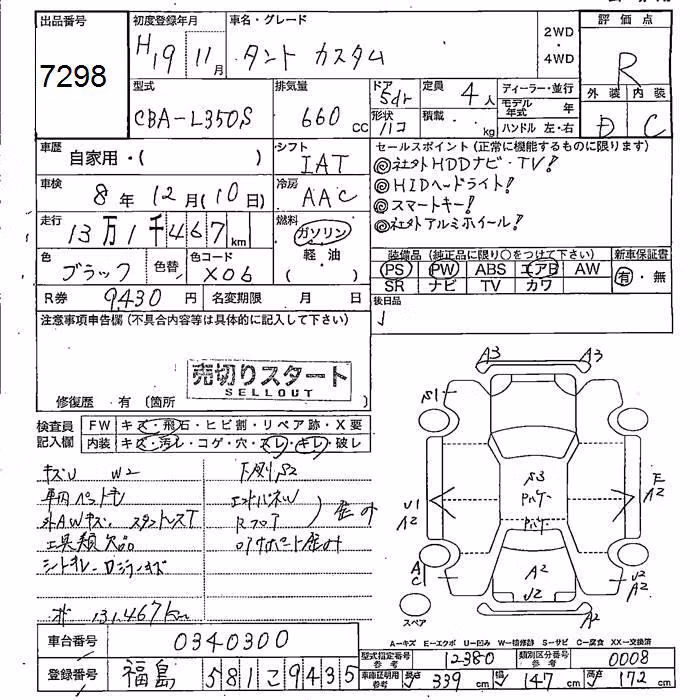 出品番号
7298
初度登録年月
H19 11月
車名・グレード
タント カスタム
2WD
・
4WD
評価点
R
外装 内装
D C
型式
CBA-L350S
排気量
660 CC
ドア
5dr
形状
ハコ
定員
4人
積載
kg
ディーラー・並行
モデル年式 年
ハンドル 左・右
車歴
自家用・( )
シフト
IAT
車検
8年12月(10日)
冷房
AAC
セールスポイント(正常に機能するものに限ります)
◎社外HDDナビ・TV!
◎HIDヘッドライト!
◎スマートキー!
◎社外アルミホイール!
走行
13万1千467km
燃料
ガソリン
軽・油
( )
色
ブラック
色替
色コード
X06
装備品(純正品に限り○をつけて下さい)
PS PW ABS エアB AW
SR ナビ TV カワ
新車保証書
有・無
R券 9430円
名変期限 月 日
後日品
注意事項申告欄(不具合内容等は具体的に記入して下さい)
売切りスタート
SELLOUT
修復歴 有(箇所 )
検査員記入欄
FW キズ・飛石・ヒビ割・リペア跡・X要
内装 キズ・汚レ・コゲ・穴・スレ・キレ・破レ
キズU W2
下廻りS2
車内ペットモ
エンドパネル
外AWキズ
Rフロア
歪み
工具類欠品
ロアサポート歪み
131,467km
A3 A3
S1
S3
U1
A2
E
A2
A
C
A2
U2
U2
A2
A2
スペア
A-キズ E-エクボ U-凹み W-補修跡 S-サビ C-腐食 XX-交換済
車台番号
0340300
登録番号
福島 581こ9435
型式指定番号
参考
12380
類別区分番号
参考
0008
車庫証明用
参考
長さ 339cm 幅 147cm 高さ 172cm